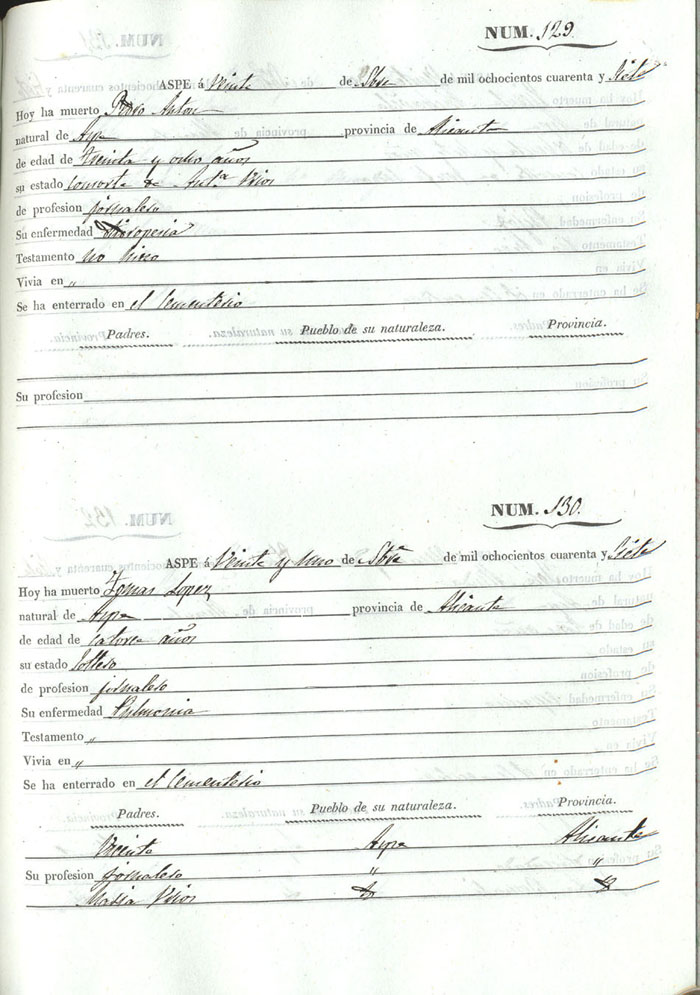 NUM. 129.
ASPE á Veinte de Sbre de mil ochocientos cuarenta y Siete
Hoy ha muerto Pedro Anton
natural de Aspe provincia de Alicante
de edad de treinta y ocho años
su estado consorte de Ant.ª
de profesion jornalero
Su enfermedad Hidropesia
Testamento no hizo
Vivia en "
Se ha enterrado en el Cementerio
Padres. Pueblo de su naturaleza. Provincia.
Su profesion
NUM. 130.
ASPE á Veinte y uno de de mil ochocientos cuarenta y Siete
Hoy ha muerto Tomas Lopez
natural de Aspe provincia de Alicante
de edad de catorce años
su estado soltero
de profesion jornalero
Su enfermedad Pulmonia
Testamento "
Vivia en "
Se ha enterrado en el Cementerio
Padres. Pueblo de su naturaleza. Provincia.
Vicente Aspe Alicante
Su profesion jornalero " "
Maria